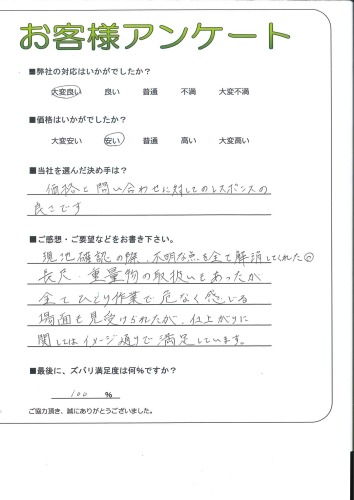 お客様アンケート
■弊社の対応はいかがでしたか？
大変良い 良い 普通 不満 大変不満
■価格はいかがでしたか？
大変安い 安い 普通 高い 大変高い
■当社を選んだ決め手は？
価格と問い合わせに対してのレスポンスの
良さです
■ご感想・ご要望などをお書き下さい。
現地確認の際、不明な点を全て解消してくれた。
長尺・重量物の取扱いもあったが
全てひとり作業で危なく感じる
場面も見受けられたが、仕上がりに
関してはイメージ通りで満足しています。
■最後に、ズバリ満足度は何%ですか？
100 %
ご協力頂き、誠にありがとうございました。